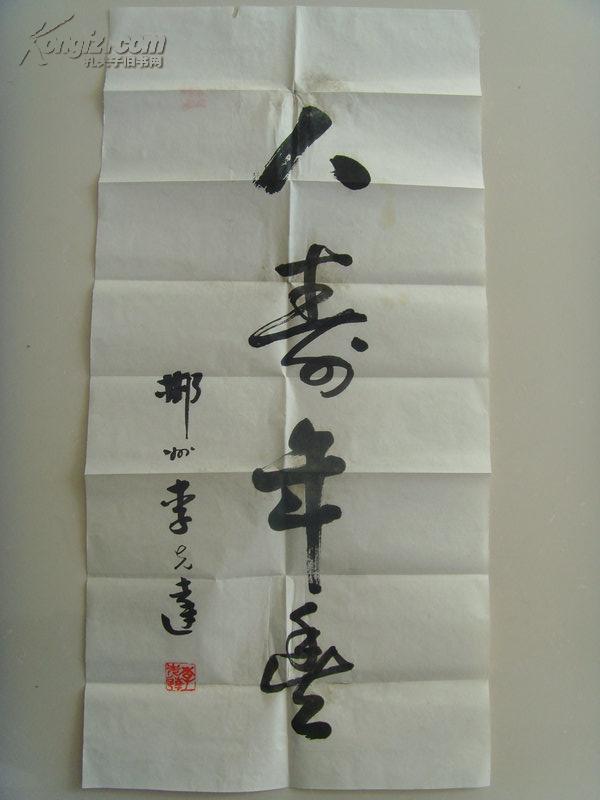 人寿年豐
郴州李克達
Kongfz.com
孔夫子旧书网